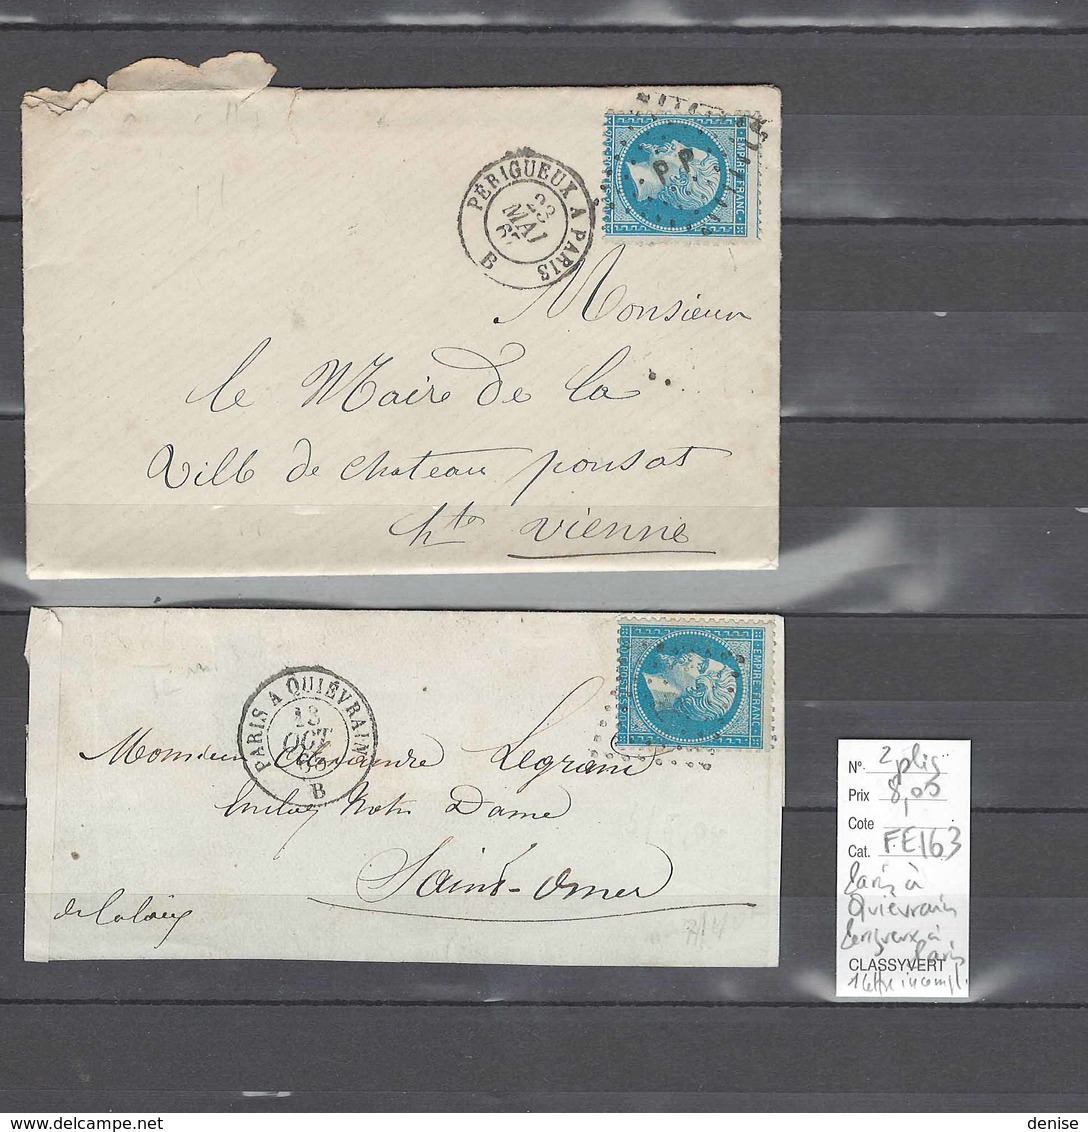 PÉRIGUEUX A PARIS
23
MAI
67
B
P.P.
EMPIRE FRANC
Monsieur
le Maire de la
Ville de chateau ponsat
hte Vienne
PARIS A QUIÉVRAIN
13
OCT
B
EMPIRE FRANC
20 C POSTES 20 C
Monsieur Legrand
Notre Dame
Saint-Omer
de Calais
N° 2 plis
Prix 8,00
Cote
Cat. FE163
Paris à
Quievrain
Perigueux à
Paris
CLASSYVERT
1 lettre incompl.
denise